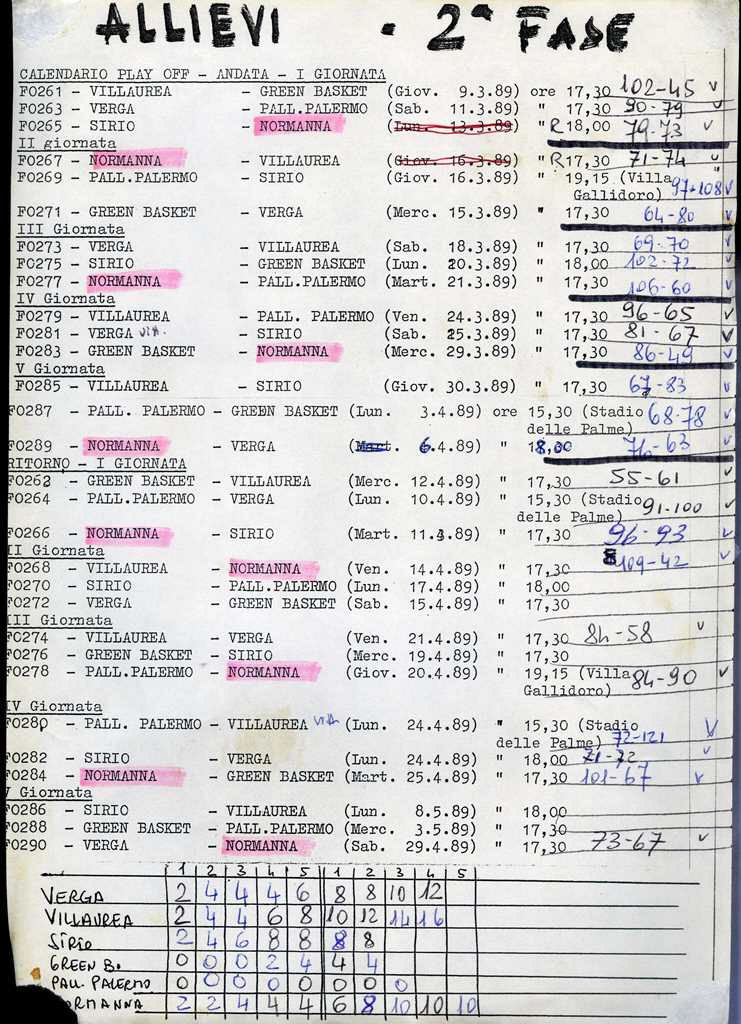 ALLIEVI - 2ª FASE
CALENDARIO PLAY OFF - ANDATA - I GIORNATA
F0261 - VILLAUREA - GREEN BASKET (Giov. 9.3.89) ore 17,30 102-45 v
F0263 - VERGA - PALL.PALERMO (Sab. 11.3.89) " 17,30 90-79 v
F0265 - SIRIO - NORMANNA (Lun. 13.3.89) " R 18,00 79-73 v
II giornata
F0267 - NORMANNA - VILLAUREA (Giov. 16.3.89) " R 17,30 71-74 v
F0269 - PALL.PALERMO - SIRIO (Giov. 16.3.89) " 19,15 (Villa
Gallidoro) 97-108 v
F0271 - GREEN BASKET - VERGA (Merc. 15.3.89) " 17,30 64-80 v
III Giornata
F0273 - VERGA - VILLAUREA (Sab. 18.3.89) " 17,30 69-70 v
F0275 - SIRIO - GREEN BASKET (Lun. 20.3.89) " 18,00 102-72 v
F0277 - NORMANNA - PALL.PALERMO (Mart. 21.3.89) " 17,30 106-60 v
IV Giornata
F0279 - VILLAUREA - PALL. PALERMO (Ven. 24.3.89) " 17,30 96-65 v
F0281 - VERGA - SIRIO (Sab. 25.3.89) " 17,30 81-67 v
F0283 - GREEN BASKET - NORMANNA (Merc. 29.3.89) " 17,30 86-49 v
V Giornata
F0285 - VILLAUREA - SIRIO (Giov. 30.3.89) " 17,30 67-83 v
F0287 - PALL. PALERMO - GREEN BASKET (Lun. 3.4.89) ore 15,30 (Stadio
delle Palme) 68-78 v
F0289 - NORMANNA - VERGA (Mart. 6.4.89) " 18,00 76-63 v
RITORNO - I GIORNATA
F0262 - GREEN BASKET - VILLAUREA (Merc. 12.4.89) " 17,30 55-61 v
F0264 - PALL.PALERMO - VERGA (Lun. 10.4.89) " 15,30 (Stadio
delle Palme) 91-100 v
F0266 - NORMANNA - SIRIO (Mart. 11.4.89) " 17,30 96-93 v
II Giornata
F0268 - VILLAUREA - NORMANNA (Ven. 14.4.89) " 17,30 109-42 v
F0270 - SIRIO - PALL.PALERMO (Lun. 17.4.89) " 18,00
F0272 - VERGA - GREEN BASKET (Sab. 15.4.89) " 17,30
III Giornata
F0274 - VILLAUREA - VERGA (Ven. 21.4.89) " 17,30 84-58 v
F0276 - GREEN BASKET - SIRIO (Merc. 19.4.89) " 17,30
F0278 - PALL.PALERMO - NORMANNA (Giov. 20.4.89) " 19,15 (Villa
Gallidoro) 84-90 v
IV Giornata
F0280 - PALL. PALERMO - VILLAUREA (Lun. 24.4.89) " 15,30 (Stadio
delle Palme) 72-121 v
F0282 - SIRIO - VERGA (Lun. 24.4.89) " 18,00 71-72 v
F0284 - NORMANNA - GREEN BASKET (Mart. 25.4.89) " 17,30 101-67 v
V Giornata
F0286 - SIRIO - VILLAUREA (Lun. 8.5.89) " 18,00
F0288 - GREEN BASKET - PALL.PALERMO (Merc. 3.5.89) " 17,30
F0290 - VERGA - NORMANNA (Sab. 29.4.89) " 17,30 73-67 v
1 2 3 4 5 1 2 3 4 5
VERGA 2 4 4 4 6 8 8 10 12
VILLAUREA 2 4 4 6 8 10 12 14 16
SIRIO 2 4 6 8 8 8 8
GREEN B. 0 0 0 2 4 4 4
PALL. PALERMO 0 0 0 0 0 0 0 0
NORMANNA 2 2 4 4 4 6 8 10 10 10